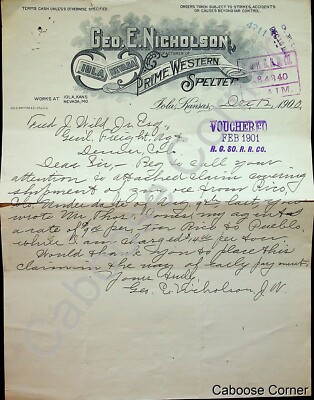 TERMS CASH UNLESS OTHERWISE SPECIFIED.
ORDERS TAKEN SUBJECT TO STRIKES, ACCIDENTS
OR CAUSES BEYOND OUR CONTROL.
GEO. E. NICHOLSON,
IOLA
NEVADA
PRIME WESTERN
SPELTER
WORKS AT
IOLA, KANS.
NEVADA, MO.
Iola, Kansas, Dec 12, 1900.
84940
VOUCHERED
FEB 1901
R. G. SO. R. R. CO.
Fred J Wild Jr Esq.
Genl Freight Agt
Denver Col
Dear Sir - Beg to call your
attention to attached claim covering
shipment of zinc ore from Rico,
Co. Under date of last you
wrote Mr my agent
a rate of per ton Rico to Pueblo,
while I am charged per ton.
Would thank you to place this
claim in the way of early payment.
Yours truly,
Geo. E. Nicholson J.W.
Caboose Corner